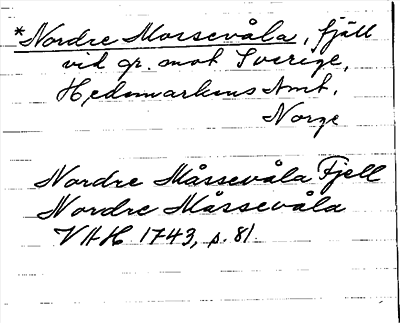 *Nordre Morsevåla, fjäll
vid gr. mot Sverige,
Hedemarkens Amt,
Norge
Nordre Mårsevåla Fjell
Nordre Mårsevåla
VAH 1743, s. 81.